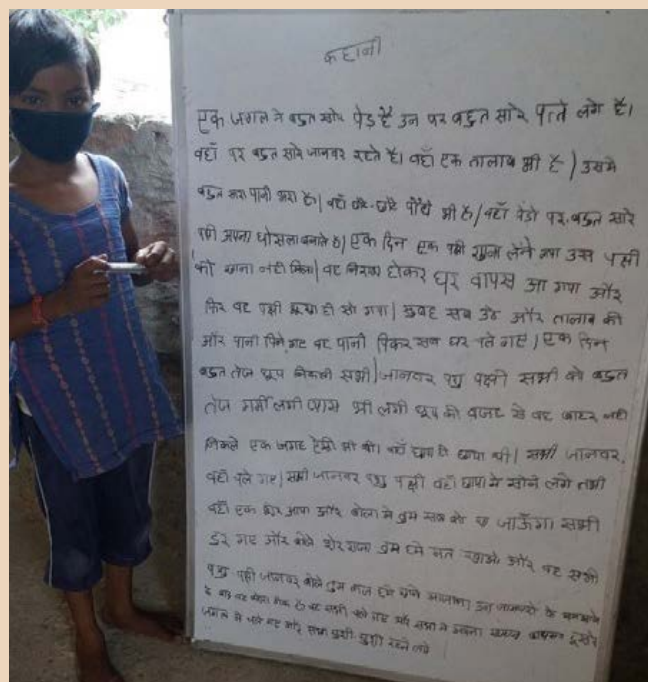 कहानी
एक जगल मे बहुत सारे पेड़ है उन पर बहुत सारे पाते लगे है।
वहाँ पर बहुत सारे जानवर रहते है। वहाँ एक तालाब भी है / उसमे
बहुत सारा पानी भरा है। वहाँ छोटे-छोटे पौधे भी है / वहाँ पेडो पर बहुत सारे
पक्षी अपना घोसला बनाते है। एक दिन एक पक्षी खाना लेने गया उस पक्षी
को खाना नही मिला। वह निराश होकर घर वापस आ गया और
फिर वह पक्षी भूखा ही सो गया। सुबह सब उठे और तालाब की
और पानी पिने गए वह पानी पिकर सब घर चले गए / एक दिन
बहुत तेज धूप निकली सभी जानवर पशु पक्षी सभी को बहुत
तेज गर्मी लगी प्यास भी लगी धूप की वजह से वह बाहर नही
निकले एक जगह ऐसी भी थी। वहाँ छाया ही छाया थी। सभी जानवर
वहाँ चले गए। सभी जानवर पशु पक्षी वहाँ छाया मे सोने लगे तभी
वहाँ एक शेर आया और बोला मे तुम सब को खा जाऊँगा सभी
डर गए और बोले शेर राजा तुम हमे मत खाओ और वह सभी
पशु पक्षी जानवर बोले तुम आज हमे
वह सभी चले गए और सभी ने अपना दूसरे
जगल मे चले गए और सभी खुशी खुशी रहने लगे